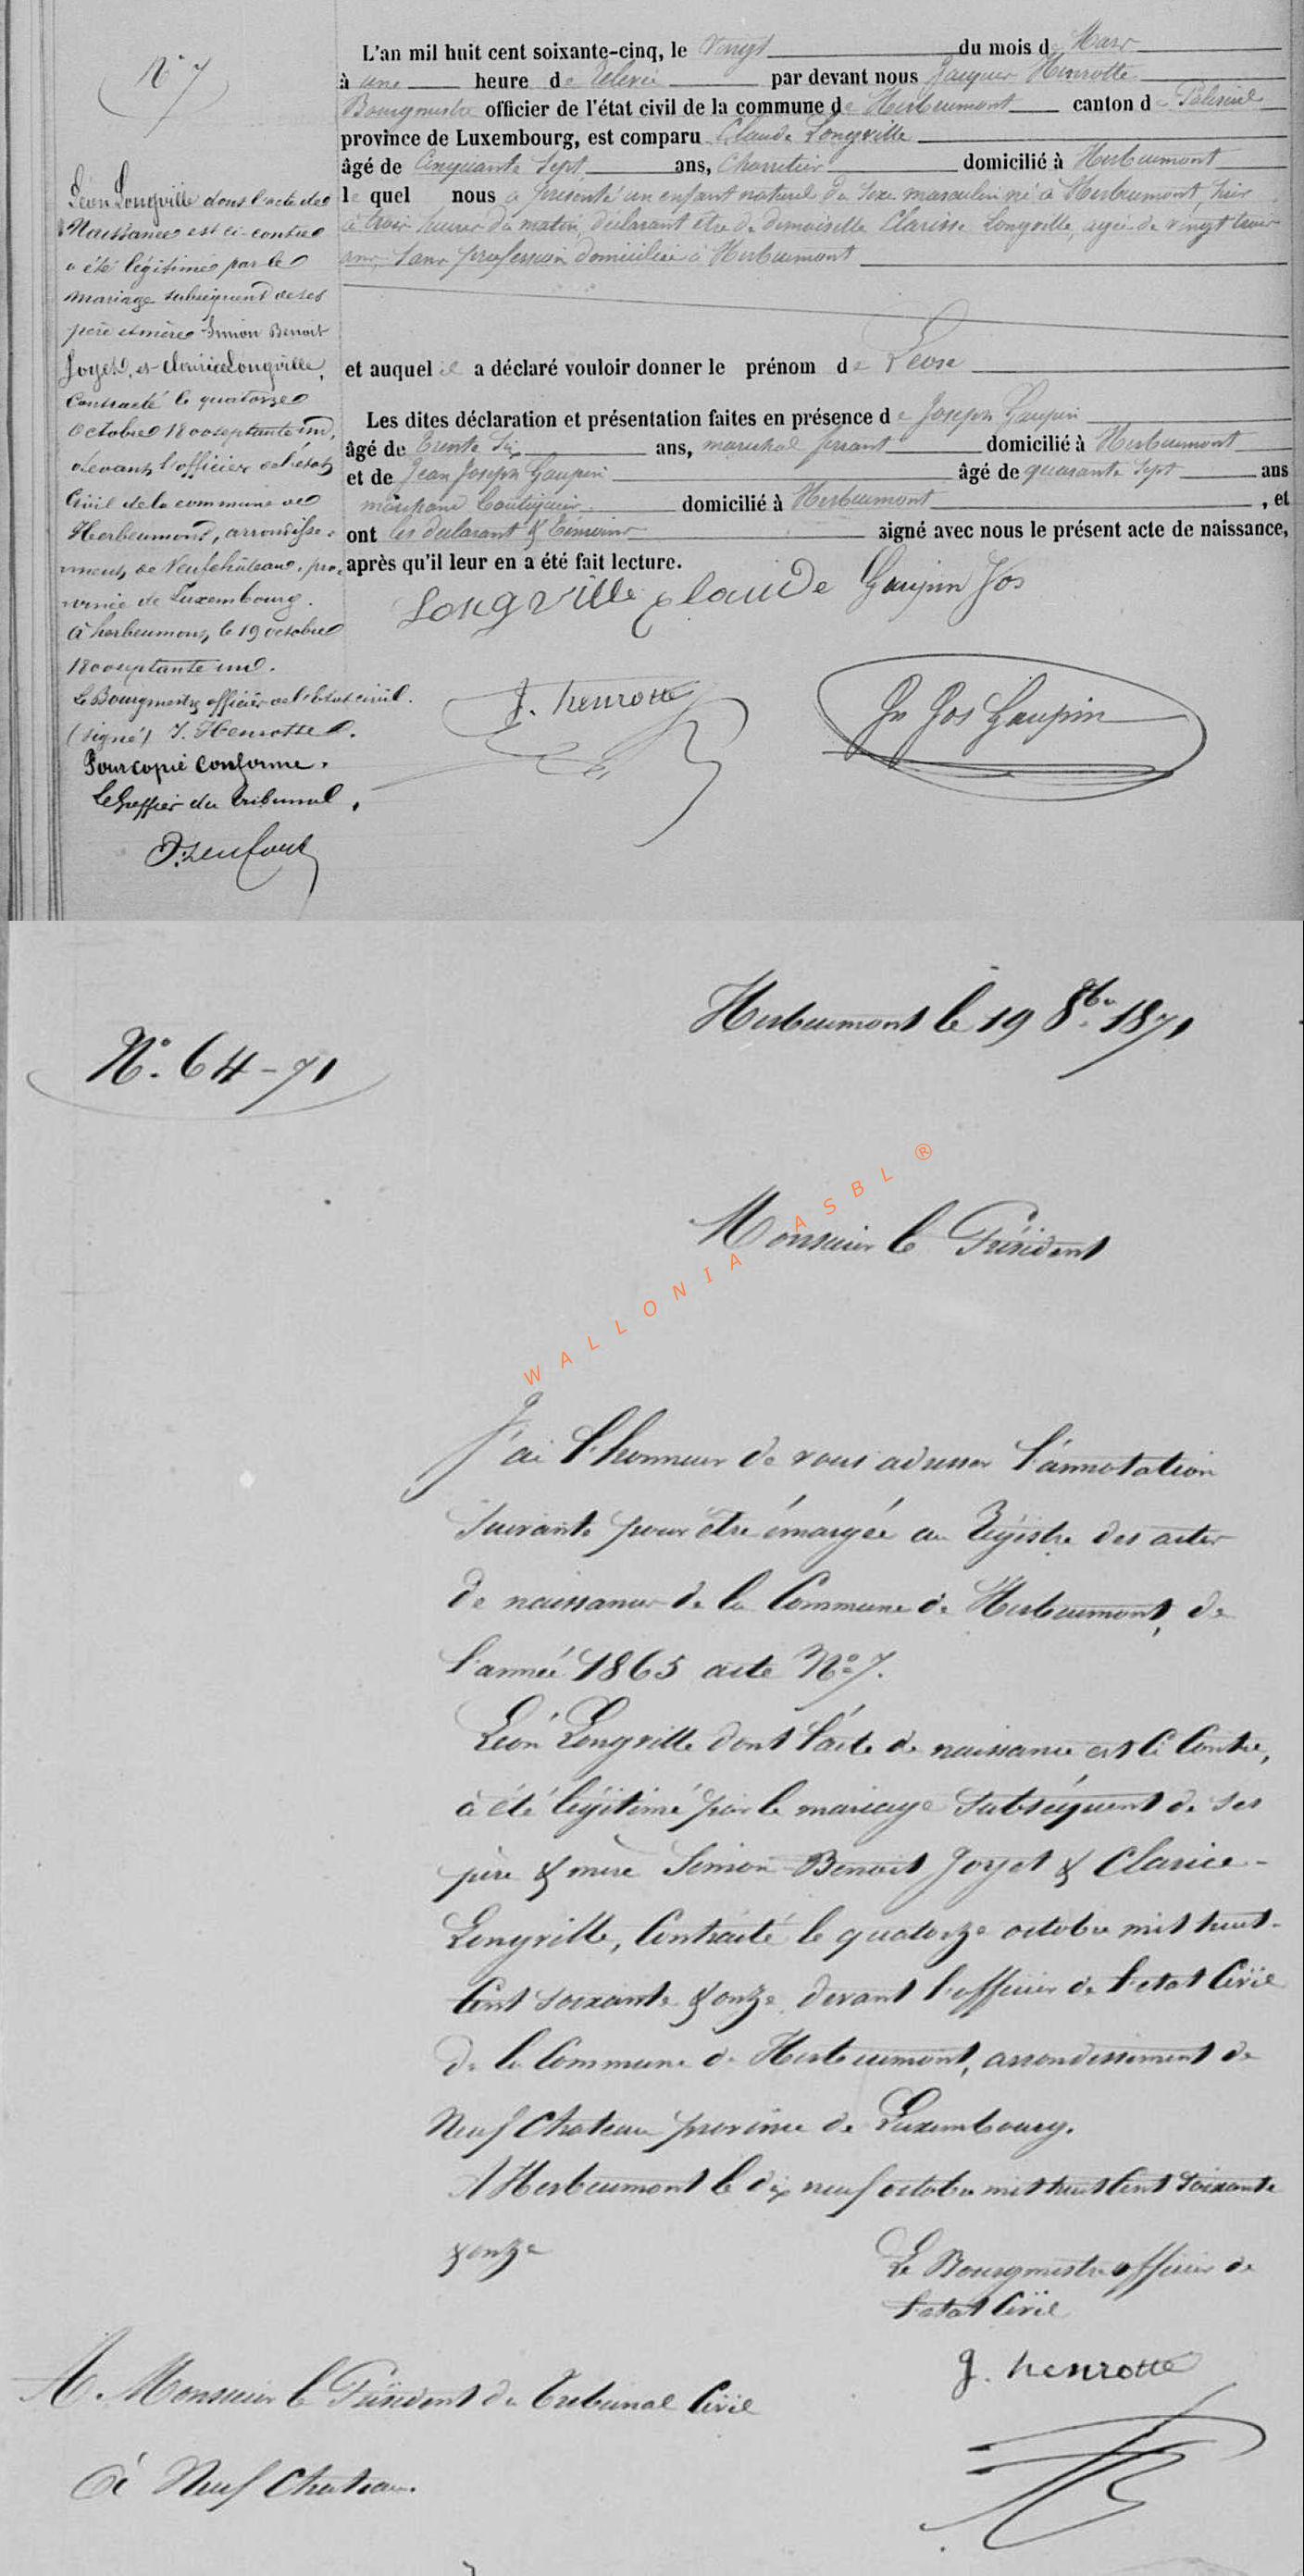 N° 7
L'an mil huit cent soixante-cinq, le Vingt du mois de Mars
à une heure de relevée par devant nous Jacques Henrotte
Bourgmestre officier de l'état civil de la commune de Herbeumont canton de Paliseul
province de Luxembourg, est comparu Claude Longville
âgé de Cinquante Sept ans, Charretier domicilié à Herbeumont
le quel nous a présenté un enfant naturel du sexe masculin né à Herbeumont, hier
à trois heures du matin, déclarant etre de demoiselle Clarisse Longville, agée de vingt
ans, sans profession domiciliée à Herbeumont
et auquel il a déclaré vouloir donner le prénom de Léon
Les dites déclaration et présentation faites en présence de Joseph Gaupin
âgé de trente Six ans, maréchal ferrant domicilié à Herbeumont
et de Jean Joseph Gaupin âgé de quarante sept ans
marchand boutiquier domicilié à Herbeumont, et
ont les déclarant & témoins signé avec nous le présent acte de naissance,
après qu'il leur en a été fait lecture.
Longville Claude Gaupin Jos
J. henrotte Jn Jos Gaupin
Léon Longville dont l'acte de
Naissance est ci-contre
a été légitimé par le
mariage subséquent de ses
père et mère Simon Benoit
Joyet, et Clarice Longville,
Contracté le quatorze
Octobre 1800 septante un,
devant l'officier de l'état
Civil de la commune de
Herbeumont, arrondisse-
ment de Neufchâteau, pro-
vince de Luxembourg.
à herbeumont, le 19 octobre
1800 septante un.
Le Bourgmestre officier de l'état civil.
(signé) J. Henrotte.
Pour copie conforme.
Le Greffier du tribunal,
Herbeumont le 19 8bre 1871
N°. 64-71
WALLONIA ASBL ®
Monsieur le Président
J'ai l'honneur de vous adresser l'annotation
Suivante pour être émargée au Régistre des actes
de naissance de la Commune de Herbeumont, de
l'année 1865 acte N° 7.
Léon Longville dont l'acte de naissance est Ci Contre,
à été légitimé par le mariage Subséquent de ses
père & mère Simon Benoit Joyet & Clarice
Longville, Contracté le quatorze octobre mil huit
Cent soixante & onze, devant l'officier de l'etat Civil
de la Commune de Herbeumont, arrondissement de
Neuf Chateau province de Luxembourg.
A Herbeumont le dix neuf octobre mil huit Cent Soixante
& onze
Le Bourgmestre officier de
l'etat Civil
J. henrotte
A. Monsieur le Président du Tribunal Civil
à Neuf Chateau.